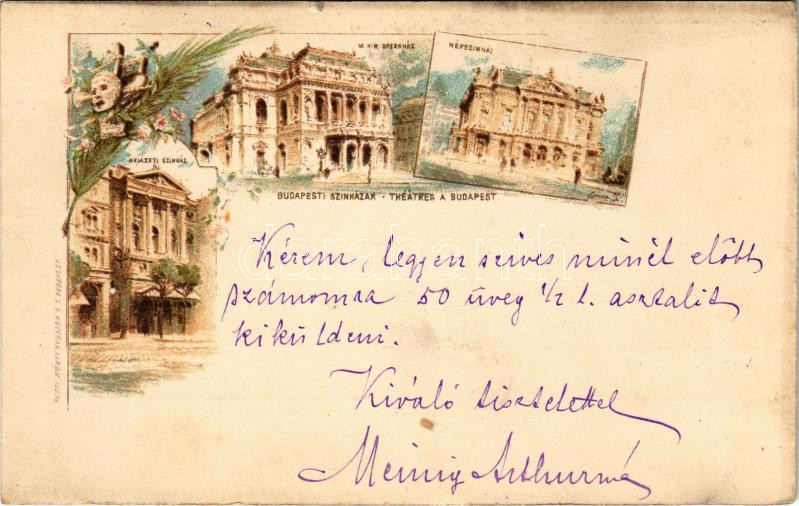 M. KIR. OPERAHÁZ
NÉPSZINHÁZ
NEMZETI SZINHÁZ
BUDAPESTI SZINHÁZAK - THÉÂTRES A BUDAPEST
Kérem, legyen szives minél előbb
számomra 50 üveg 1/2 l. asztalit
kiküldeni.
Kiváló tisztelettel
Meinig Arthurné
PESTI KÖNYVNYOMDA R. T. BUDAPEST
darabanth